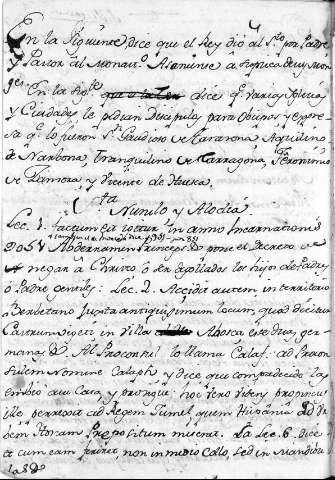 En la Siguiente dice que el Rey dió al Sto por Padre
y Pastor al Monast.º Asaniense a suplica de sus Mon
ges En la sigte dice q.e varias Iglesias
y Ciudades le pedian Discipulos para Obispos y expre
sa q.e lo fueron Sn Gaudioso de Tarazona Aquilino
de Narbona Tranquilino de Tarragona Geronimo
de Zamora, y Vicente de Huesca.
Sta
Nunilo y Alodia
Lec. 1. Factum est igitur in anno Incarnationis
pone el Decreto de
negar a Christo, o ser degollados los hijos de Padre,
o Padre gentiles: Lec. 2. Accidit autem in territorio
Berbetano juxta antiquissimum locum, quod dicitur
Castrum Vigeti in Villa Abosca este dias ger
manas &. Al Proconsul lo llama Calaf: ad Procon
sulem nomine Calaph y dice que compadecido las
embio a su Casa, y prosigue: hoc vero videns
ille perrexit ad Regem quem Hispania ad
dem Horam Prepositum miserat. La Lec. 6. dice
cum eam feriret, non in medio Collo, sed in Mandibu
la &c